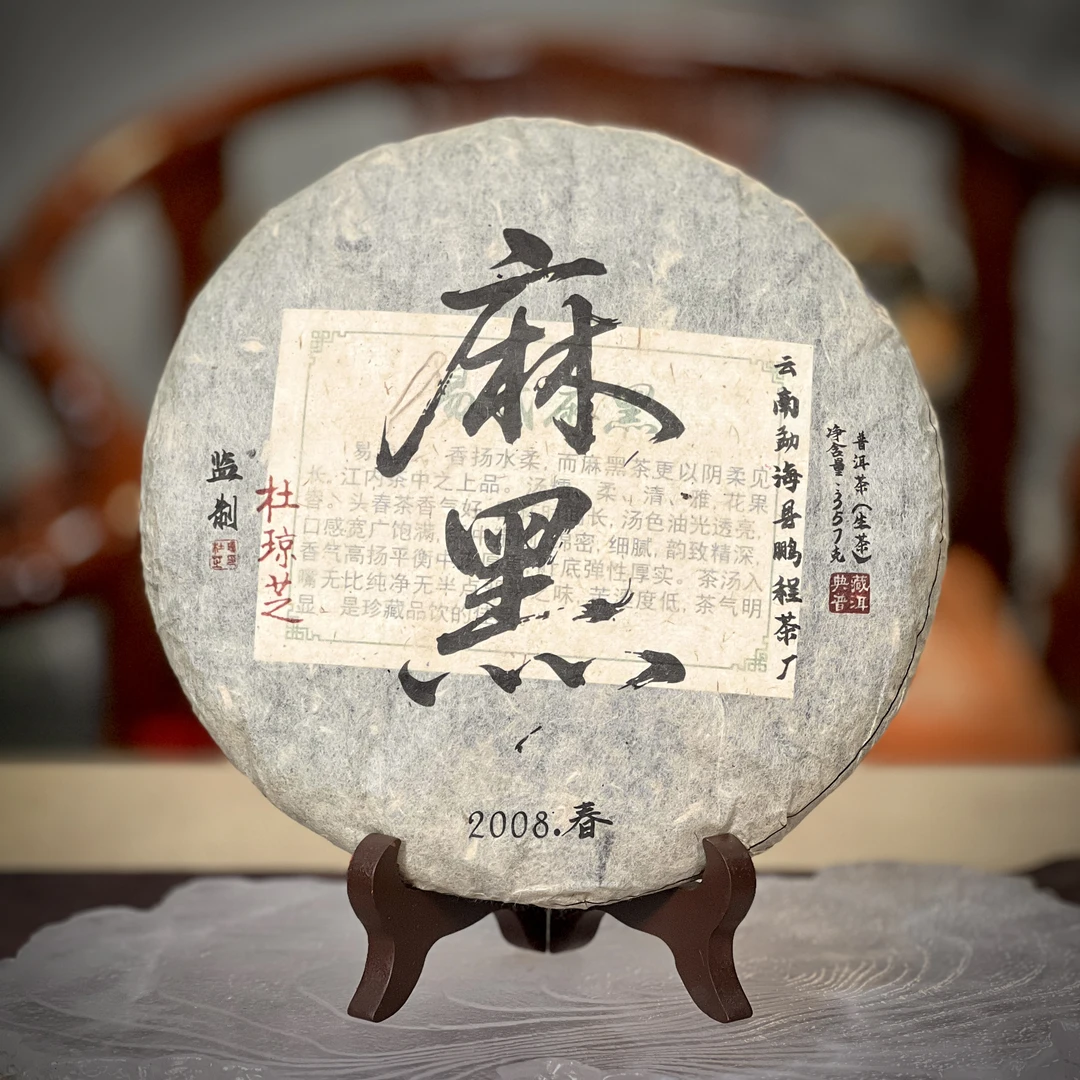 麻黑
云南勐海县鹏程茶厂
普洱茶(生茶)
净含量:357克
藏洱
典普
监制
杜琼芝
易
香扬水柔,而麻黑茶更以阴柔见
长。江内茶中之上品。汤
柔、清、雅,花果
香。头春茶香气好
长,汤色油光透亮,
口感宽广饱满,
绵密,细腻,韵致精深,
香气高扬平衡中
底弹性厚实。茶汤入
嘴无比纯净无半点
味,苦涩度低,茶气明
显、是珍藏品饮的
2008.春